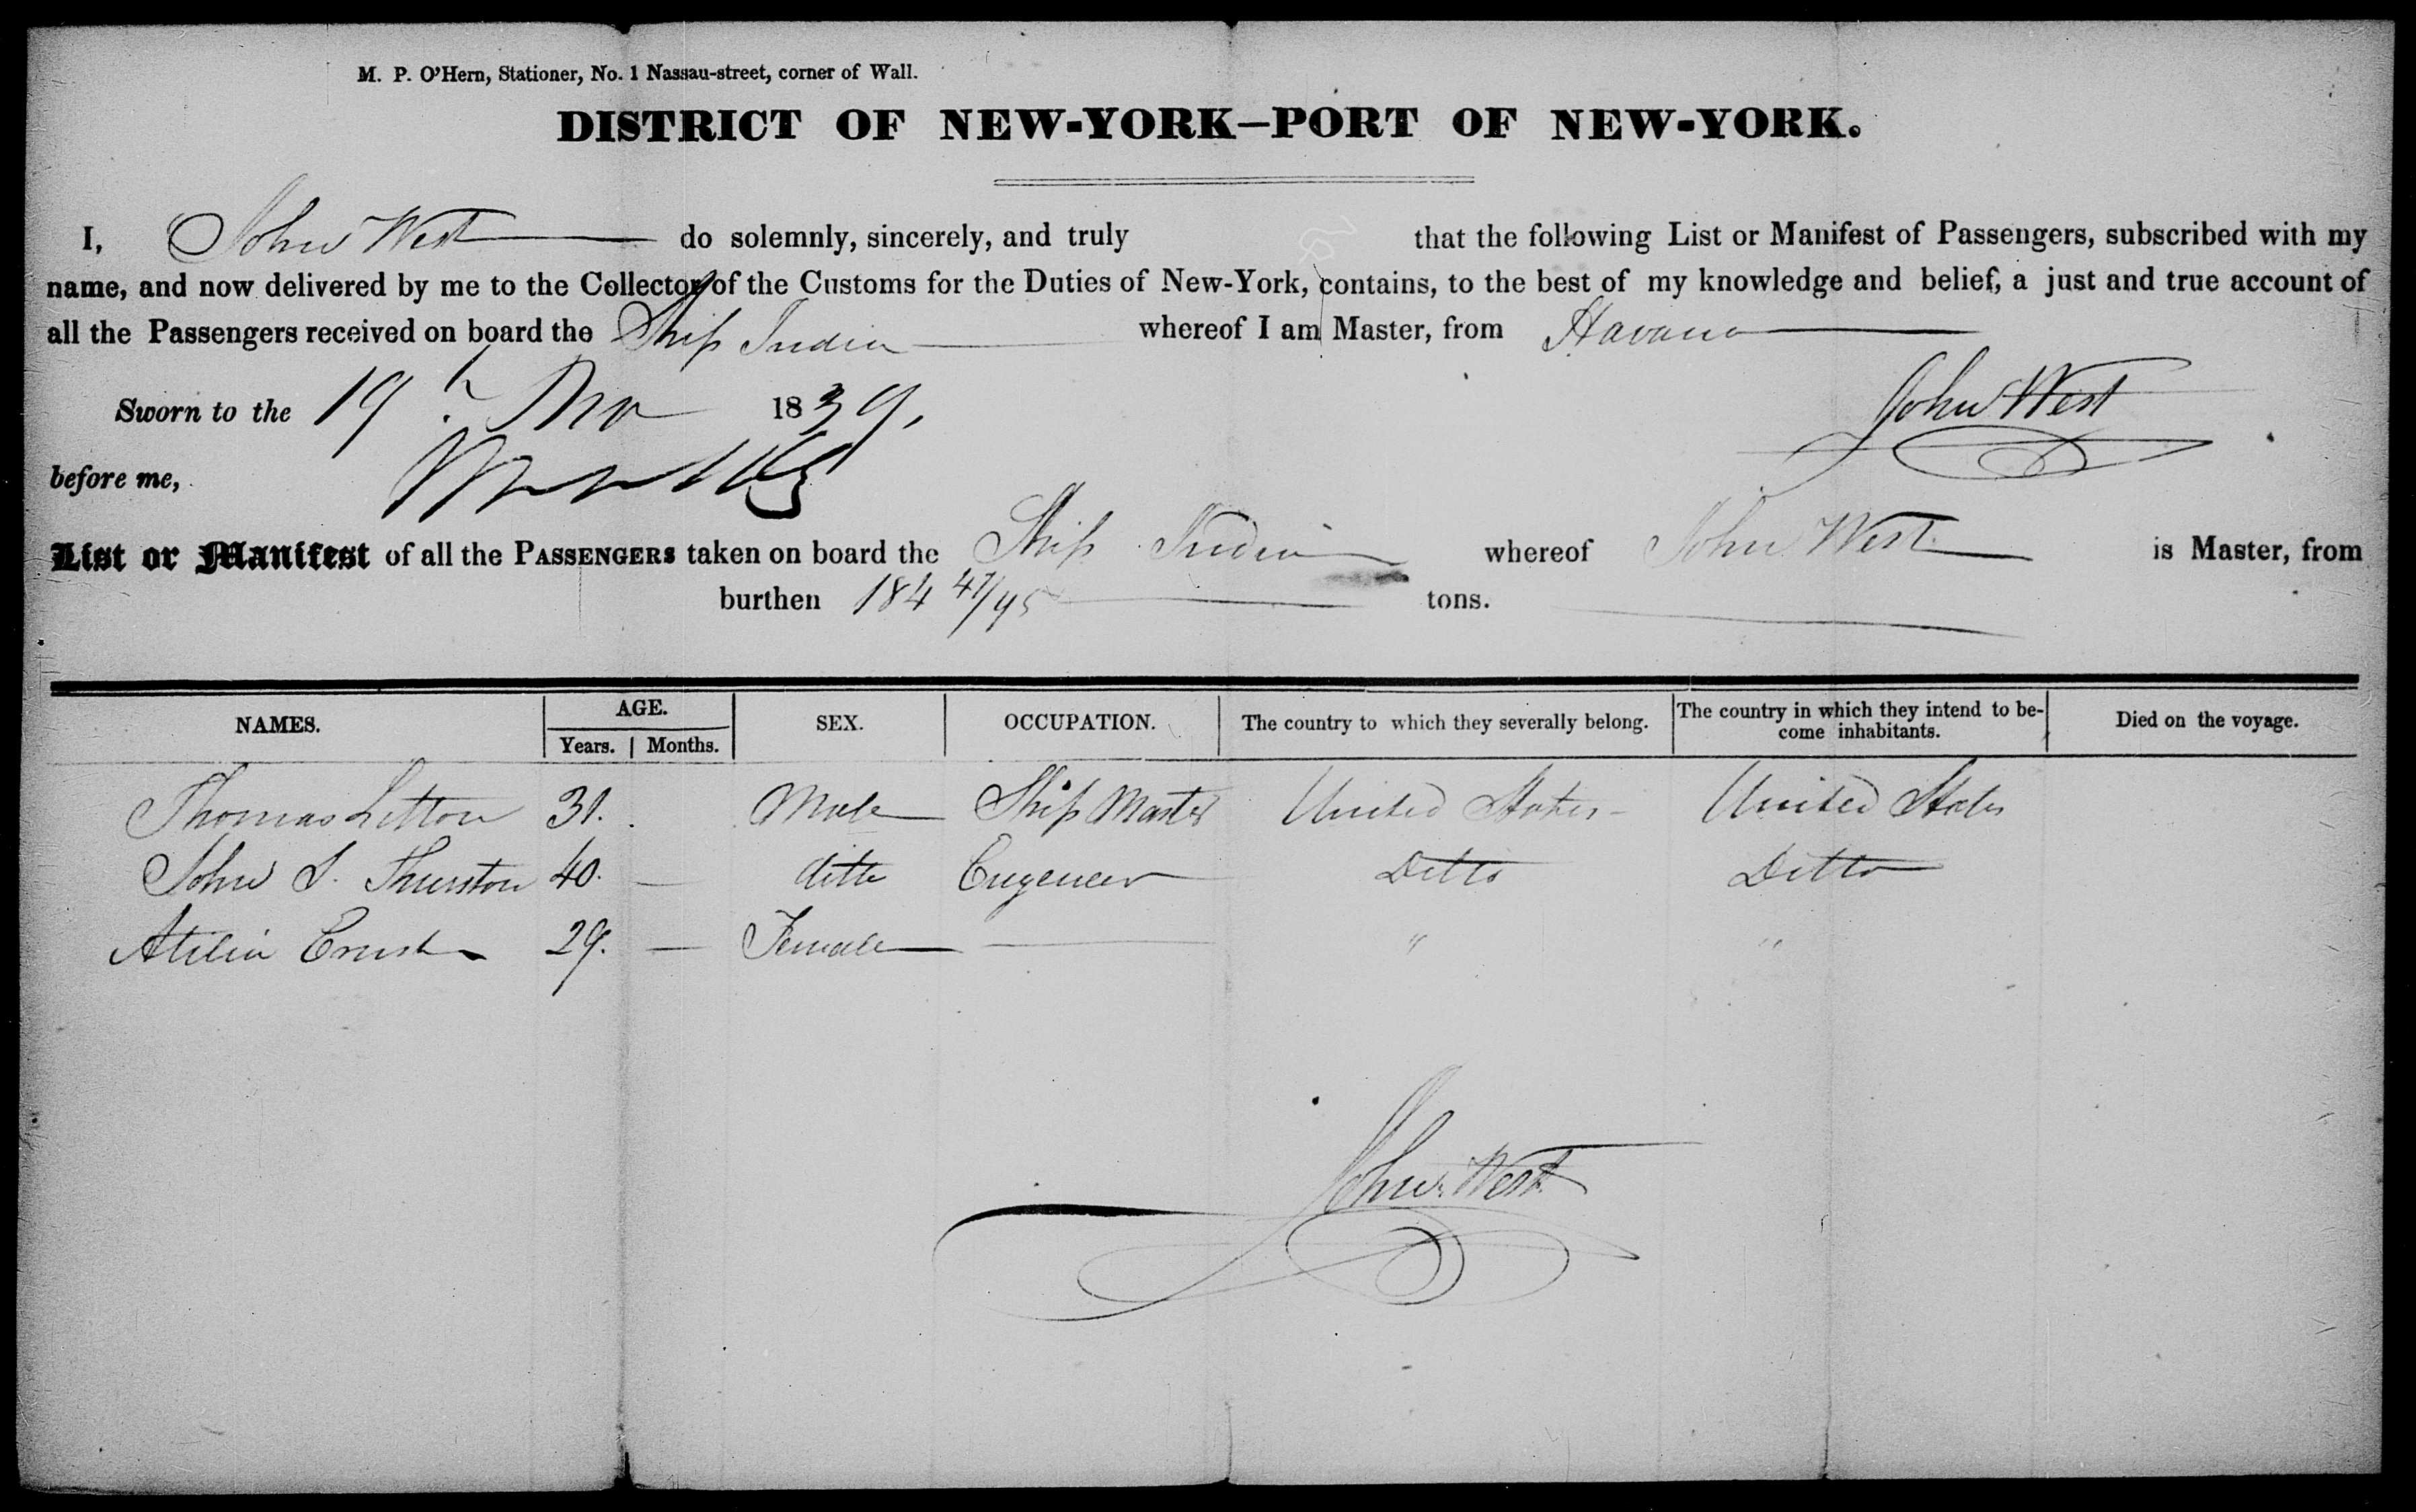 M. P. O'Hern, Stationer, No. 1 Nassau-street, corner of Wall.
DISTRICT OF NEW-YORK—PORT OF NEW-YORK.
I, John West do solemnly, sincerely, and truly that the following List or Manifest of Passengers, subscribed with my
name, and now delivered by me to the Collector of the Customs for the Duties of New-York, contains, to the best of my knowledge and belief, a just and true account of
all the Passengers received on board the Ship India whereof I am Master, from Havana
Sworn to the 19th Nov 1839,
John West
before me,
List or Manifest of all the PASSENGERS taken on board the Ship India whereof John West is Master, from
burthen 184 47/95 tons.
NAMES. AGE. Years. Months. SEX. OCCUPATION. The country to which they severally belong. The country in which they intend to become inhabitants. Died on the voyage.
Thomas Litton 31. Male Ship Master United States United States
John S. Thurston 40. — ditto Engeneer Ditto Ditto
Atilia 29. — Female — " "
John West